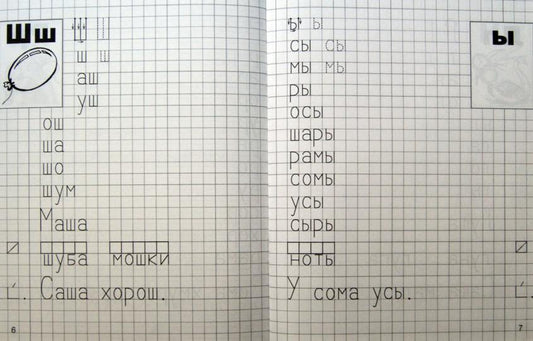 Шш Ш Ш
ш ш
аш
уш
ош
ша
шо
шум
Маша
шуба мошки
Саша хорош.
6
ы ы ы
сы сы
мы мы
ры
осы
шары
рамы
сомы
усы
сыры
ноты
У сома усы.
7